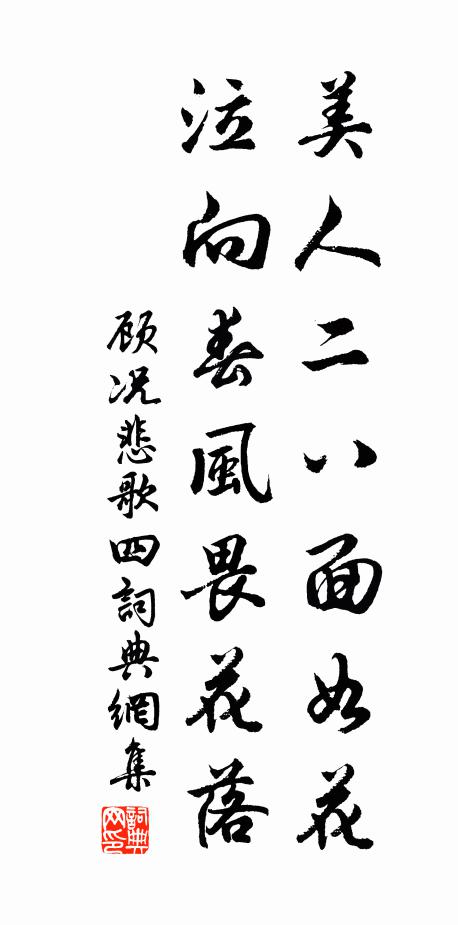 美人二八面如花
泣向春風畏花落
顾况悲歌四詞典網集
詞典网印